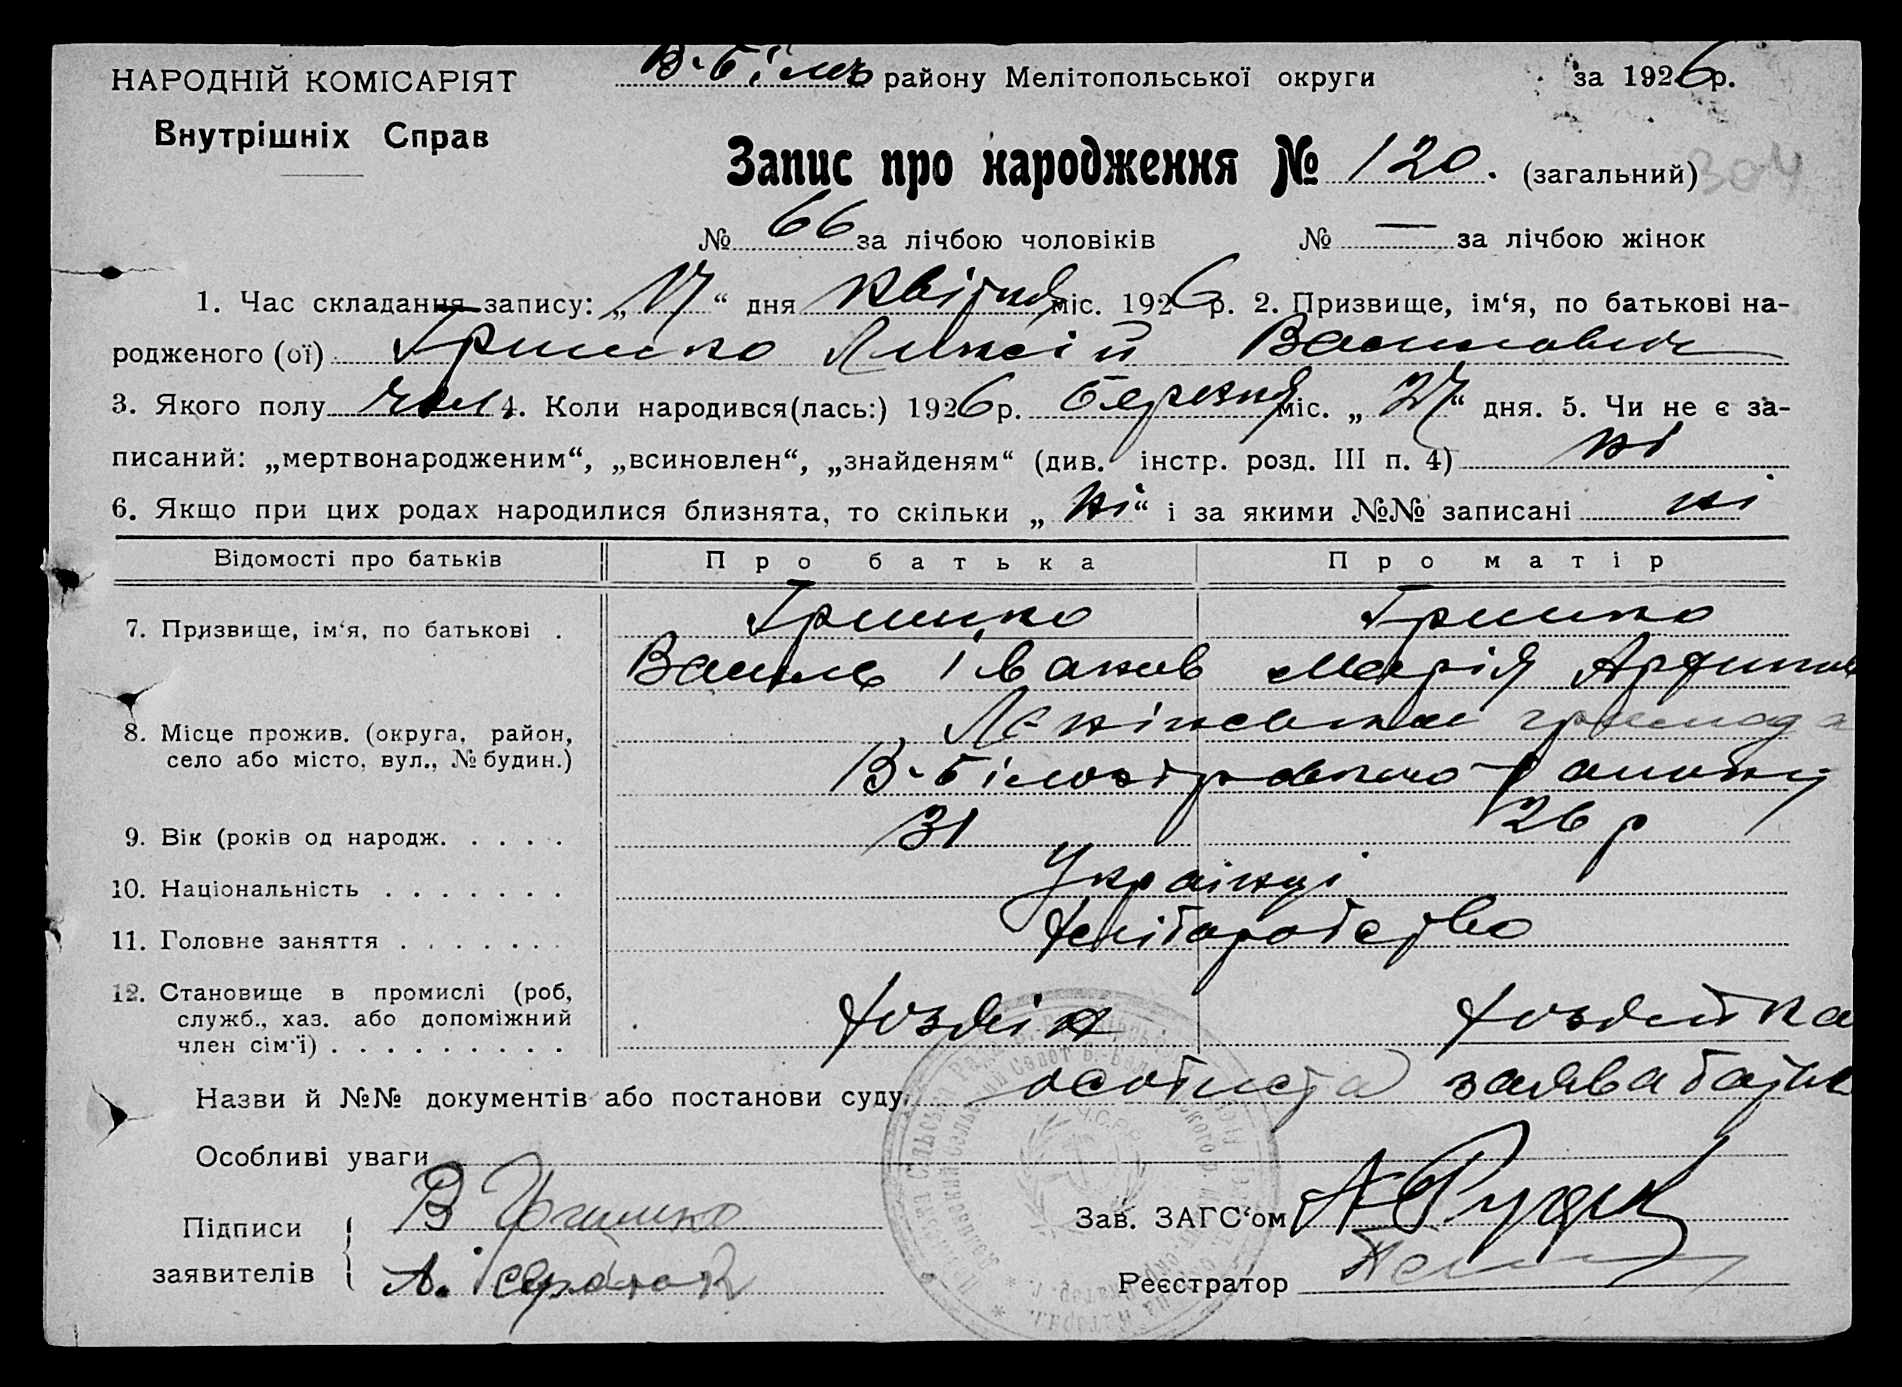 НАРОДНІЙ КОМІСАРІЯТ
Внутрішніх Справ
В-Біло району Мелітопольської округи за 1926р.
Запис про народження № 120. (загальний) 304
№ 66 за лічбою чоловіків № — за лічбою жінок
1. Час складання запису: „17“ дня квітня міс. 1926 р. 2. Призвище, ім‘я, по батькові на-
родженого (ої) Гришко Василович
3. Якого полу чол 4. Коли народився(лась:) 1926р. березня міс. „27“ дня. 5. Чи не є за-
писаний: „мертвонародженим“, „всиновлен“, „знайденям“ (див. інстр. розд. III п. 4) ні
6. Якщо при цих родах народилися близнята, то скільки „ні“ і за якими №№ записані ні
Відомості про батьків Про батька Про матір
7. Призвище, ім‘я, по батькові . Гришко Гришко
Василь Іванов Марія
8. Місце прожив. (округа, район, Ленінська громада
село або місто, вул., № будин.) району
9. Вік (років од народж. . . . . 31 26 р
10. Національність . . . . . . . Українці
11. Головне заняття . . . . . . . Хліборобство
12. Становище в промислі (роб,
служб., хаз. або допоміжний хозяїн хозяйка
член сім‘ї) . . . . . . . . . .
Назви й №№ документів або постанови суду. особиста заява батьк
Особливі уваги
Підписи В Гришко Зав. ЗАГС‘ом
заявителів А. Реєстратор